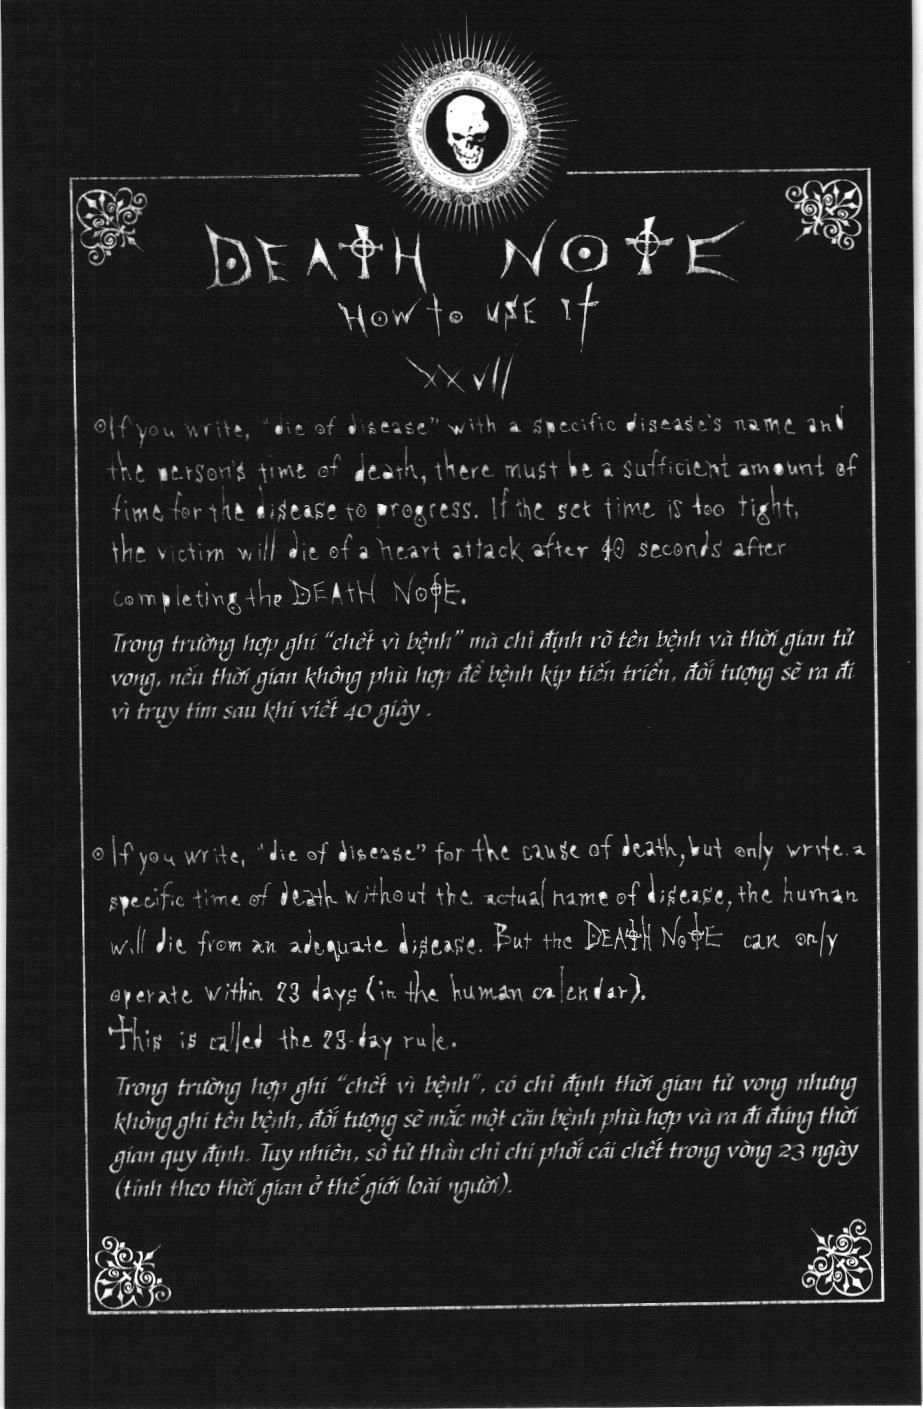 DEATH NOTE
How to use it
XXVII
If you write, "die of disease" with a specific disease's name and
the person's time of death, there must be a sufficient amount of
time for the disease to progress. If the set time is too tight,
the victim will die of a heart attack after 40 seconds after
completing the DEATH NOTE.
Trong trường hợp ghi "chết vì bệnh" mà chỉ định rõ tên bệnh và thời gian tử
vong, nếu thời gian không phù hợp để bệnh kịp tiến triển, đối tượng sẽ ra đi
vì trụy tim sau khi viết 40 giây .
If you write, "die of disease" for the cause of death, but only write a
specific time of death without the actual name of disease, the human
will die from an adequate disease. But the DEATH NOTE can only
operate within 23 days (in the human calendar).
This is called the 23-day rule.
Trong trường hợp ghi "chết vì bệnh", có chỉ định thời gian tử vong nhưng
không ghi tên bệnh, đối tượng sẽ mắc một căn bệnh phù hợp và ra đi đúng thời
gian quy định. Tuy nhiên, sổ tử thần chỉ chi phối cái chết trong vòng 23 ngày
(tính theo thời gian ở thế giới loài người).